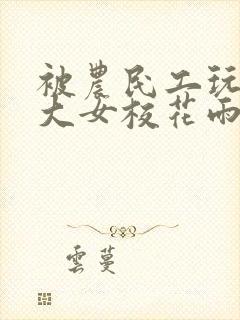 被農民工玩
大女校花雨
雲蔓